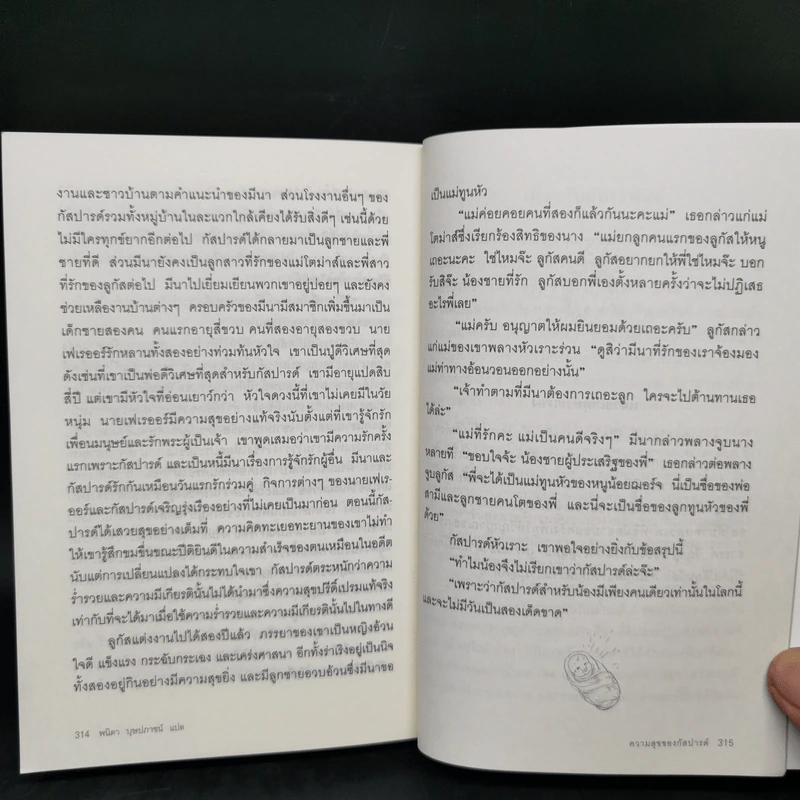 งานและชาวบ้านตามคำแนะนำของมีนา ส่วนโรงงานอื่นๆ ของ
กัสปารด์รวมทั้งหมู่บ้านในละแวกใกล้เคียงได้รับสิ่งดีๆ เช่นนี้ด้วย
ไม่มีใครทุกข์ยากอีกต่อไป กัสปารด์ได้กลายมาเป็นลูกชายและพี่
ชายที่ดี ส่วนมีนายังคงเป็นลูกสาวที่รักของแม่โตม่าส์และพี่สาว
ที่รักของลูกัสต่อไป มีนาไปเยี่ยมเยียนพวกเขาอยู่บ่อยๆ และยังคง
ช่วยเหลืองานบ้านต่างๆ ครอบครัวของมีนามีสมาชิกเพิ่มขึ้นมาเป็น
เด็กชายสองคน คนแรกอายุสี่ขวบ คนที่สองอายุสองขวบ นาย
เฟเรออร์รักหลานทั้งสองอย่างท่วมท้นหัวใจ เขาเป็นปู่ดีวิเศษที่สุด
ดังเช่นที่เขาเป็นพ่อดีวิเศษที่สุดสำหรับกัสปารด์ เขามีอายุแปดสิบ
สี่ปี แต่เขามีหัวใจที่อ่อนเยาว์กว่า หัวใจดวงนี้ที่เขาไม่เคยมีในวัย
หนุ่ม นายเฟเรออร์มีความสุขอย่างแท้จริงนับตั้งแต่ที่เขารู้จักรัก
เพื่อนมนุษย์และรักพระผู้เป็นเจ้า เขาพูดเสมอว่าเขามีความรักครั้ง
แรกเพราะกัสปารด์ และเป็นหนี้มีนาเรื่องการรู้จักรักผู้อื่น มีนาและ
กัสปารด์รักกันเหมือนวันแรกรักร่วมคู่ กิจการต่างๆ ของนายเฟเร-
ออร์และกัสปารด์เจริญรุ่งเรืองอย่างที่ไม่เคยเป็นมาก่อน ตอนนี้กัส-
ปารด์ได้เสวยสุขอย่างเต็มที่ ความคิดทะเยอทะยานของเขาไม่ทำ
ให้เขารู้สึกขมขื่นขณะปีติยินดีในความสำเร็จของตนเหมือนในอดีต
นับแต่การเปลี่ยนแปลงได้กระทบใจเขา กัสปารด์ตระหนักว่าความ
ร่ำรวยและความมีเกียรตินั้นไม่ได้นำมาซึ่งความสุขปรีดิ์เปรมแท้จริง
เท่ากับที่จะได้มาเมื่อใช้ความร่ำรวยและความมีเกียรตินั้นไปในทางดี
ลูกัสแต่งงานไปได้สองปีแล้ว ภรรยาของเขาเป็นหญิงอ้วน
ใจดี แข็งแรง กระฉับกระเฉง และเคร่งศาสนา อีกทั้งร่าเริงอยู่เป็นนิจ
ทั้งสองอยู่กินอย่างมีความสุขยิ่ง และมีลูกชายอวบอ้วนซึ่งมีนาขอ
314 พนิดา บุษปภาชน์ แปล
เป็นแม่ทูนหัว
“แม่ค่อยคอยคนที่สองก็แล้วกันนะคะแม่” เธอกล่าวแก่แม่
โตม่าส์ซึ่งเรียกร้องสิทธิของนาง “แม่ยกลูกคนแรกของลูกัสให้หนู
เถอะนะคะ ใช่ไหมจ๊ะ ลูกัสคนดี ลูกัสอยากยกให้พี่ใช่ไหมจ๊ะ บอก
รับสิจ๊ะ น้องชายที่รัก ลูกัสบอกพี่เองตั้งหลายครั้งว่าจะไม่ปฏิเสธ
อะไรพี่เลย”
“แม่ครับ อนุญาตให้ผมยินยอมด้วยเถอะครับ” ลูกัสกล่าว
แก่แม่ของเขาพลางหัวเราะร่วน “ดูสิว่ามีนาที่รักของเราจ้องมอง
แม่ท่าทางอ้อนวอนออกอย่างนั้น”
“เจ้าทำตามที่มีนาต้องการเถอะลูก ใครจะไปต้านทานเธอ
ได้ล่ะ”
“แม่ที่รักคะ แม่เป็นคนดีจริงๆ” มีนากล่าวพลางจูบนาง
หลายที “ขอบใจจ้ะ น้องชายผู้ประเสริฐของพี่” เธอกล่าวต่อพลาง
จูบลูกัส “พี่จะได้เป็นแม่ทูนหัวของหนูน้อยฌอร์จ นี่เป็นชื่อของพ่อ
สามีและลูกชายคนโตของพี่ และนี่จะเป็นชื่อของลูกทูนหัวของพี่
ด้วย”
กัสปารด์หัวเราะ เขาพอใจอย่างยิ่งกับข้อสรุปนี้
“ทำไมน้องจึงไม่เรียกเขาว่ากัสปารด์ล่ะจ๊ะ”
“เพราะว่ากัสปารด์สำหรับน้องมีเพียงคนเดียวเท่านั้นในโลกนี้
และจะไม่มีวันเป็นสองเด็ดขาด”
ความสุขของกัสปารด์ 315